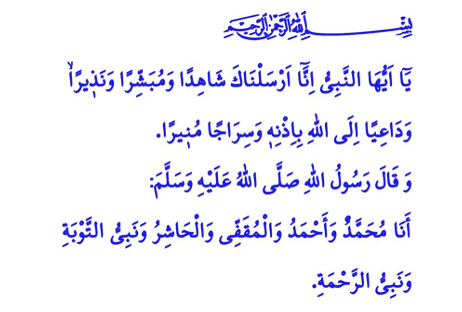 بِسْمِ اللهِ الرَّحْمٰنِ الرَّحِيمِ
يَٓا اَيُّهَا النَّبِيُّ اِنَّٓا اَرْسَلْنَاكَ شَاهِدًا وَمُبَشِّرًا وَنَذٖيرًاۙ
وَدَاعِيًا اِلَى اللهِ بِاِذْنِهٖ وَسِرَاجًا مُنٖيرًا.
وَ قَالَ رَسُولُ اللهِ صَلَّى اللهُ عَلَيْهِ وَسَلَّمَ:
أَنَا مُحَمَّدٌ وَأَحْمَدُ وَالْمُقَفِّى وَالْحَاشِرُ وَنَبِيُّ التَّوْبَةِ
وَنَبِيُّ الرَّحْمَةِ.